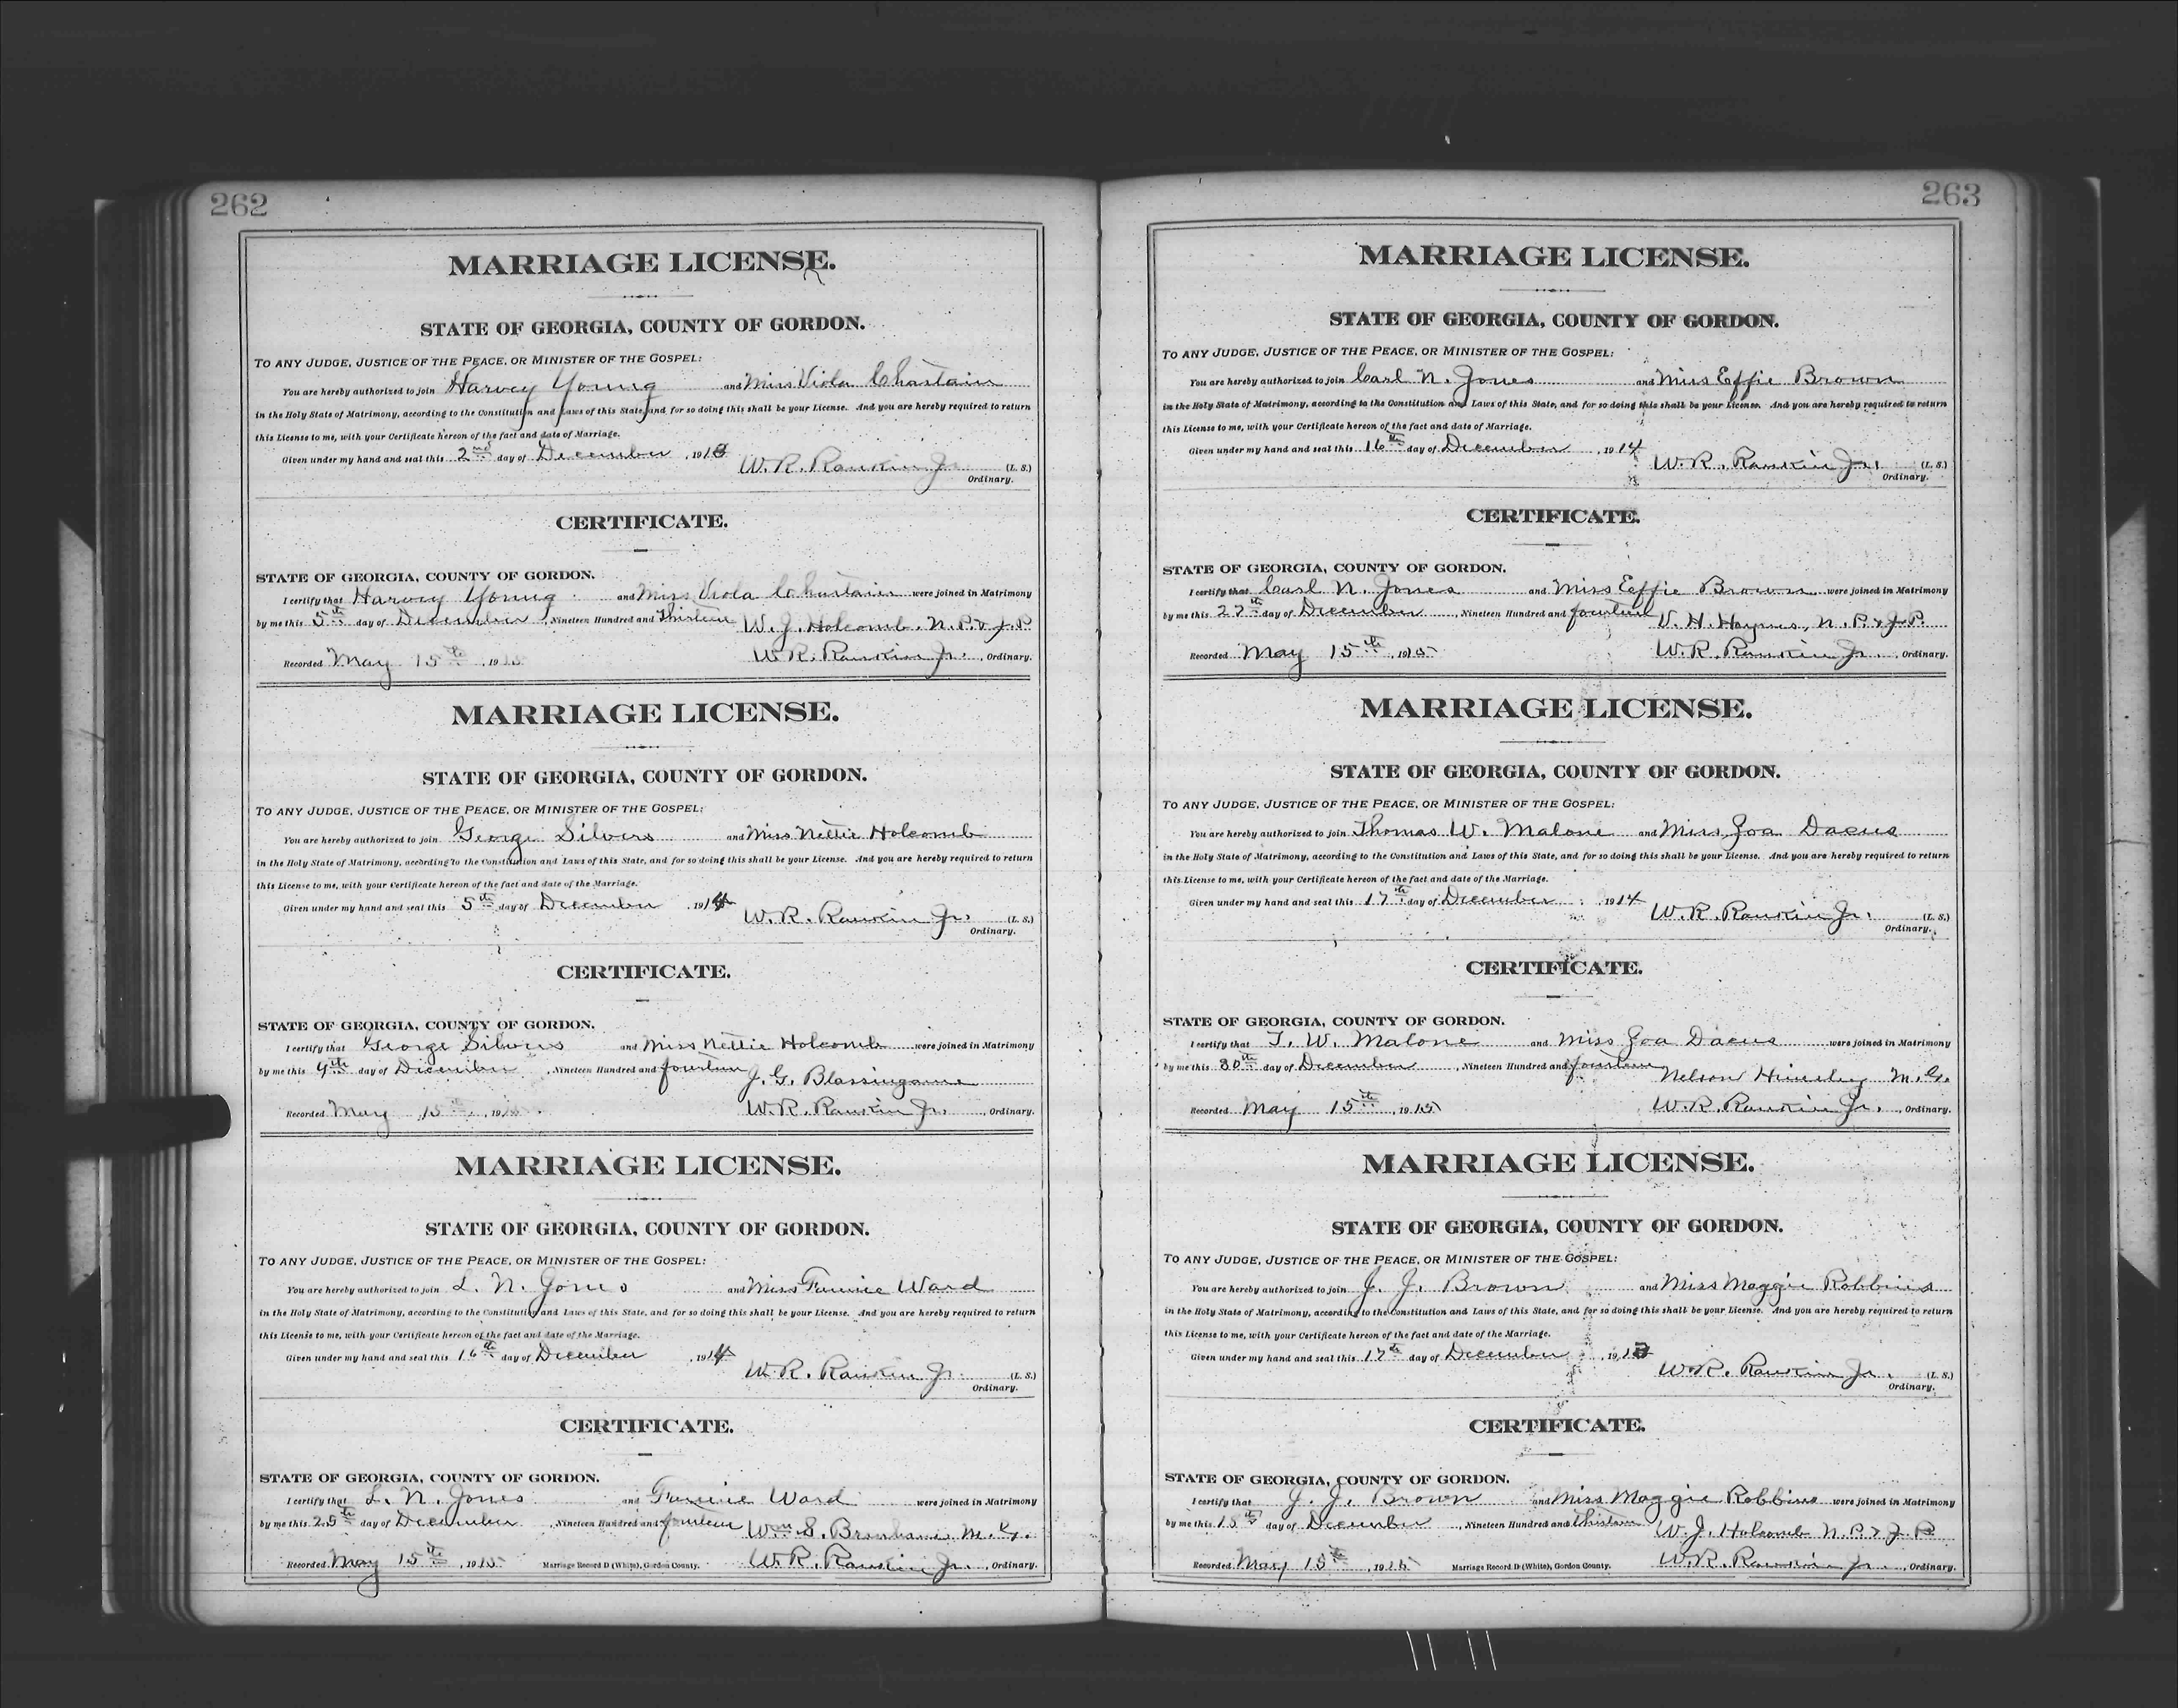 262
MARRIAGE LICENSE.
STATE OF GEORGIA, COUNTY OF GORDON.
TO ANY JUDGE, JUSTICE OF THE PEACE, OR MINISTER OF THE GOSPEL:
You are hereby authorized to join Harvey Young and Miss Viola Chastain
in the Holy State of Matrimony, according to the Constitution and Laws of this State, and for so doing this shall be your License. And you are hereby required to return
this License to me, with your Certificate hereon of the fact and date of Marriage.
Given under my hand and seal this 2nd day of December, 1913 W. R. Rankin Jr. (L. S.)
Ordinary.
CERTIFICATE.
STATE OF GEORGIA, COUNTY OF GORDON.
I certify that Harvey Young and Miss Viola Chastain were joined in Matrimony
by me this 5th day of December, Nineteen Hundred and Thirteen W. J. Holcomb. N. P. & J. P.
Recorded May 15th, 1915 W. R. Rankin Jr., Ordinary.
MARRIAGE LICENSE.
STATE OF GEORGIA, COUNTY OF GORDON.
TO ANY JUDGE, JUSTICE OF THE PEACE, OR MINISTER OF THE GOSPEL:
You are hereby authorized to join George Silvers and Miss Nettie Holcomb
in the Holy State of Matrimony, according to the Constitution and Laws of this State, and for so doing this shall be your License. And you are hereby required to return
this License to me, with your Certificate hereon of the fact and date of the Marriage.
Given under my hand and seal this 5th day of December, 1914 W. R. Rankin Jr. (L. S.)
Ordinary.
CERTIFICATE.
STATE OF GEORGIA, COUNTY OF GORDON.
I certify that George Silvers and Miss Nettie Holcomb were joined in Matrimony
by me this 9th day of December, Nineteen Hundred and fourteen J. G. Blassingame
Recorded May 15th, 1915. W. R. Rankin Jr., Ordinary.
MARRIAGE LICENSE.
STATE OF GEORGIA, COUNTY OF GORDON.
TO ANY JUDGE, JUSTICE OF THE PEACE, OR MINISTER OF THE GOSPEL:
You are hereby authorized to join L. N. Jones and Miss Ward
in the Holy State of Matrimony, according to the Constitution and Laws of this State, and for so doing this shall be your License. And you are hereby required to return
this License to me, with your Certificate hereon of the fact and date of the Marriage.
Given under my hand and seal this 16th day of December, 1914 W. R. Rankin Jr. (L. S.)
Ordinary.
CERTIFICATE.
STATE OF GEORGIA, COUNTY OF GORDON.
I certify that L. N. Jones and Ward were joined in Matrimony
by me this 25th day of December, Nineteen Hundred and fourteen Wm S. M. G.
Recorded May 15th, 1915 Marriage Record D (White), Gordon County. W. R. Rankin Jr., Ordinary.
263
MARRIAGE LICENSE.
STATE OF GEORGIA, COUNTY OF GORDON.
TO ANY JUDGE, JUSTICE OF THE PEACE, OR MINISTER OF THE GOSPEL:
You are hereby authorized to join Carl N. Jones and Miss Effie Brown
in the Holy State of Matrimony, according to the Constitution and Laws of this State, and for so doing this shall be your License. And you are hereby required to return
this License to me, with your Certificate hereon of the fact and date of Marriage.
Given under my hand and seal this 16th day of December, 1914 W. R. Rankin Jr. (L. S.)
Ordinary.
CERTIFICATE.
STATE OF GEORGIA, COUNTY OF GORDON.
I certify that Carl N. Jones and Miss Effie Brown were joined in Matrimony
by me this 27th day of December, Nineteen Hundred and fourteen V. H. Haynes, N. P. & J. P.
Recorded May 15th, 1915 W. R. Rankin Jr., Ordinary.
MARRIAGE LICENSE.
STATE OF GEORGIA, COUNTY OF GORDON.
TO ANY JUDGE, JUSTICE OF THE PEACE, OR MINISTER OF THE GOSPEL:
You are hereby authorized to join Thomas W. Malone and Miss Zoa Dacus
in the Holy State of Matrimony, according to the Constitution and Laws of this State, and for so doing this shall be your License. And you are hereby required to return
this License to me, with your Certificate hereon of the fact and date of the Marriage.
Given under my hand and seal this 17th day of December, 1914 W. R. Rankin Jr. (L. S.)
Ordinary.
CERTIFICATE.
STATE OF GEORGIA, COUNTY OF GORDON.
I certify that T. W. Malone and Miss Zoa Dacus were joined in Matrimony
by me this 30th day of December, Nineteen Hundred and fourteen Nelson M. G.
Recorded May 15th, 1915 W. R. Rankin Jr., Ordinary.
MARRIAGE LICENSE.
STATE OF GEORGIA, COUNTY OF GORDON.
TO ANY JUDGE, JUSTICE OF THE PEACE, OR MINISTER OF THE GOSPEL:
You are hereby authorized to join J. J. Brown and Miss Maggie Robbins
in the Holy State of Matrimony, according to the Constitution and Laws of this State, and for so doing this shall be your License. And you are hereby required to return
this License to me, with your Certificate hereon of the fact and date of the Marriage.
Given under my hand and seal this 17th day of December, 1913 W. R. Rankin Jr. (L. S.)
Ordinary.
CERTIFICATE.
STATE OF GEORGIA, COUNTY OF GORDON.
I certify that J. J. Brown and Miss Maggie Robbins were joined in Matrimony
by me this 18th day of December, Nineteen Hundred and thirteen W. J. Holcomb N. P. & J. P.
Recorded May 15th, 1915 Marriage Record D (White), Gordon County. W. R. Rankin Jr., Ordinary.